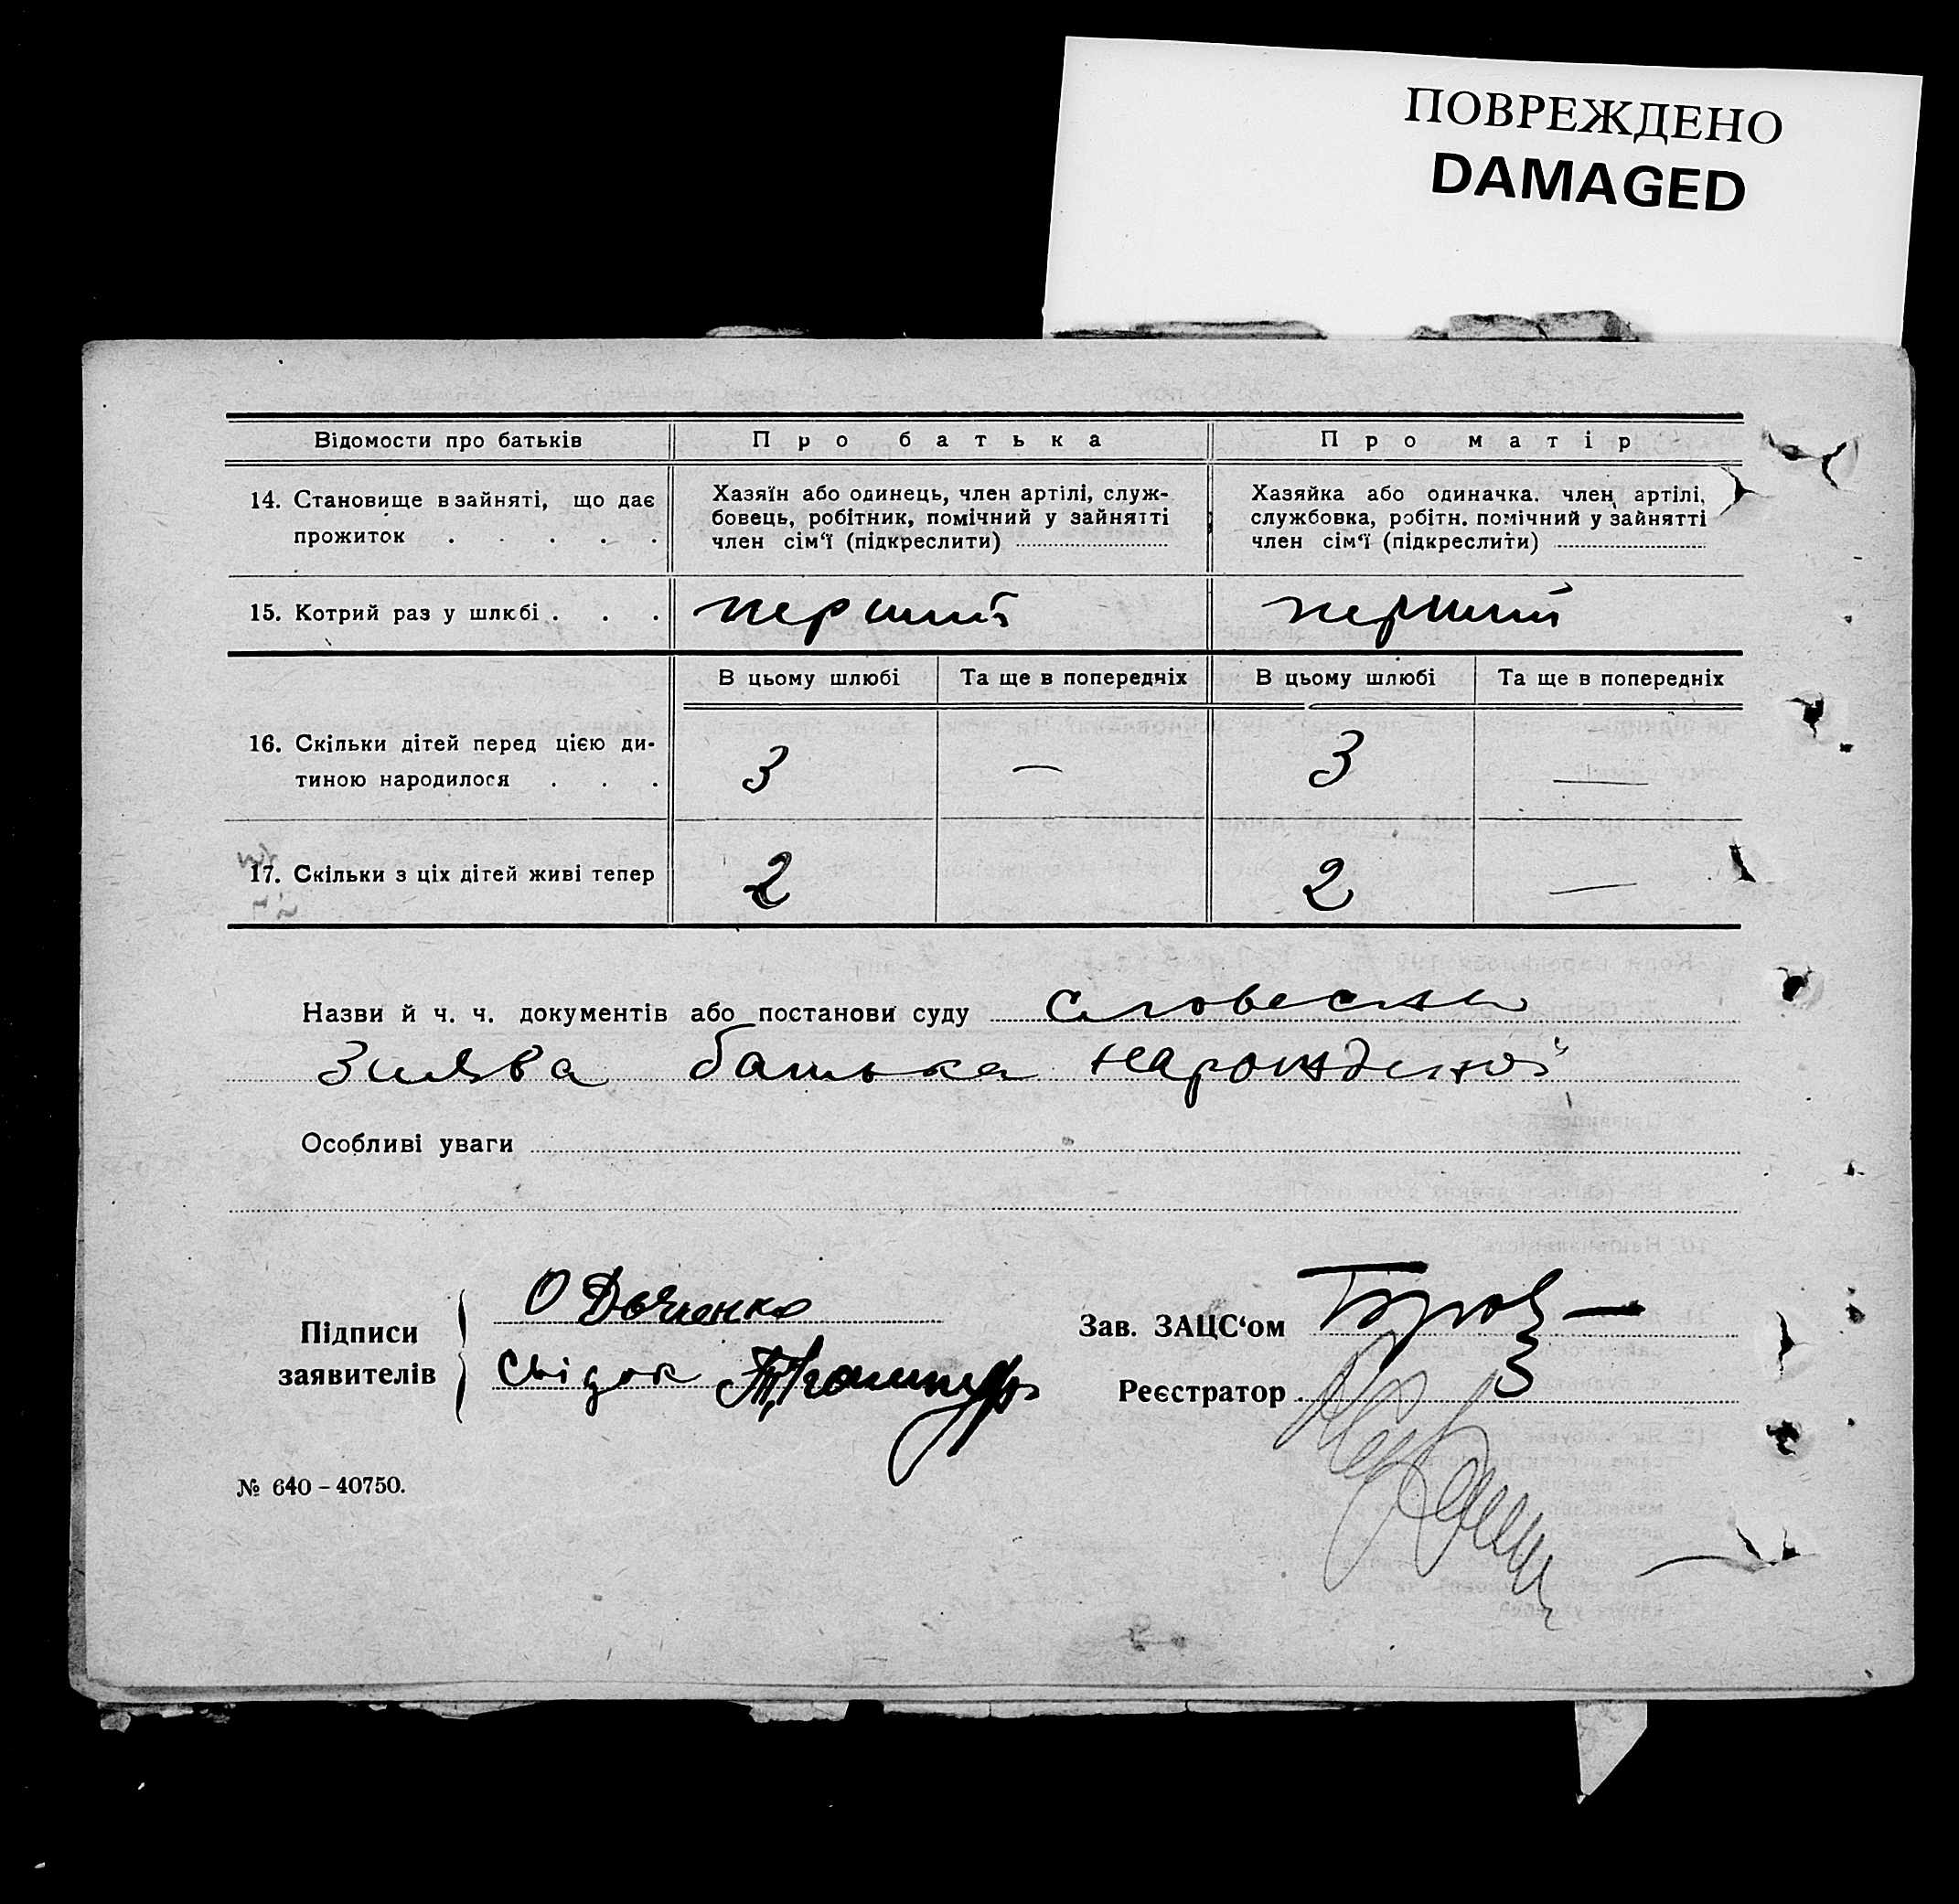 ПОВРЕЖДЕНО
DAMAGED
Відомости про батьків
Про батька
Про матір
14. Становище в зайняті, що дає
прожиток . . . . .
Хазяїн або одинець, член артілі, служ-
бовець, робітник, помічний у зайнятті
член сім'ї (підкреслити)
Хазяйка або одиначка. член артілі,
службовка, робітн. помічний у зайнятті
член сім'ї (підкреслити)
15. Котрий раз у шлюбі . . .
перший
перший
В цьому шлюбі
Та ще в попередніх
В цьому шлюбі
Та ще в попередніх
16. Скільки дітей перед цією ди-
тиною народилося . . .
3
—
3
—
17. Скільки з ціх дітей живі тепер
2
2
—
Назви й ч. ч. документів або постанови суду словесна
Заява батька нарожденої
Особливі уваги
Підписи
заявителів
О Дьяченко
Свідок
Зав. ЗАЦС'ом
Реєстратор
№ 640 – 40750.